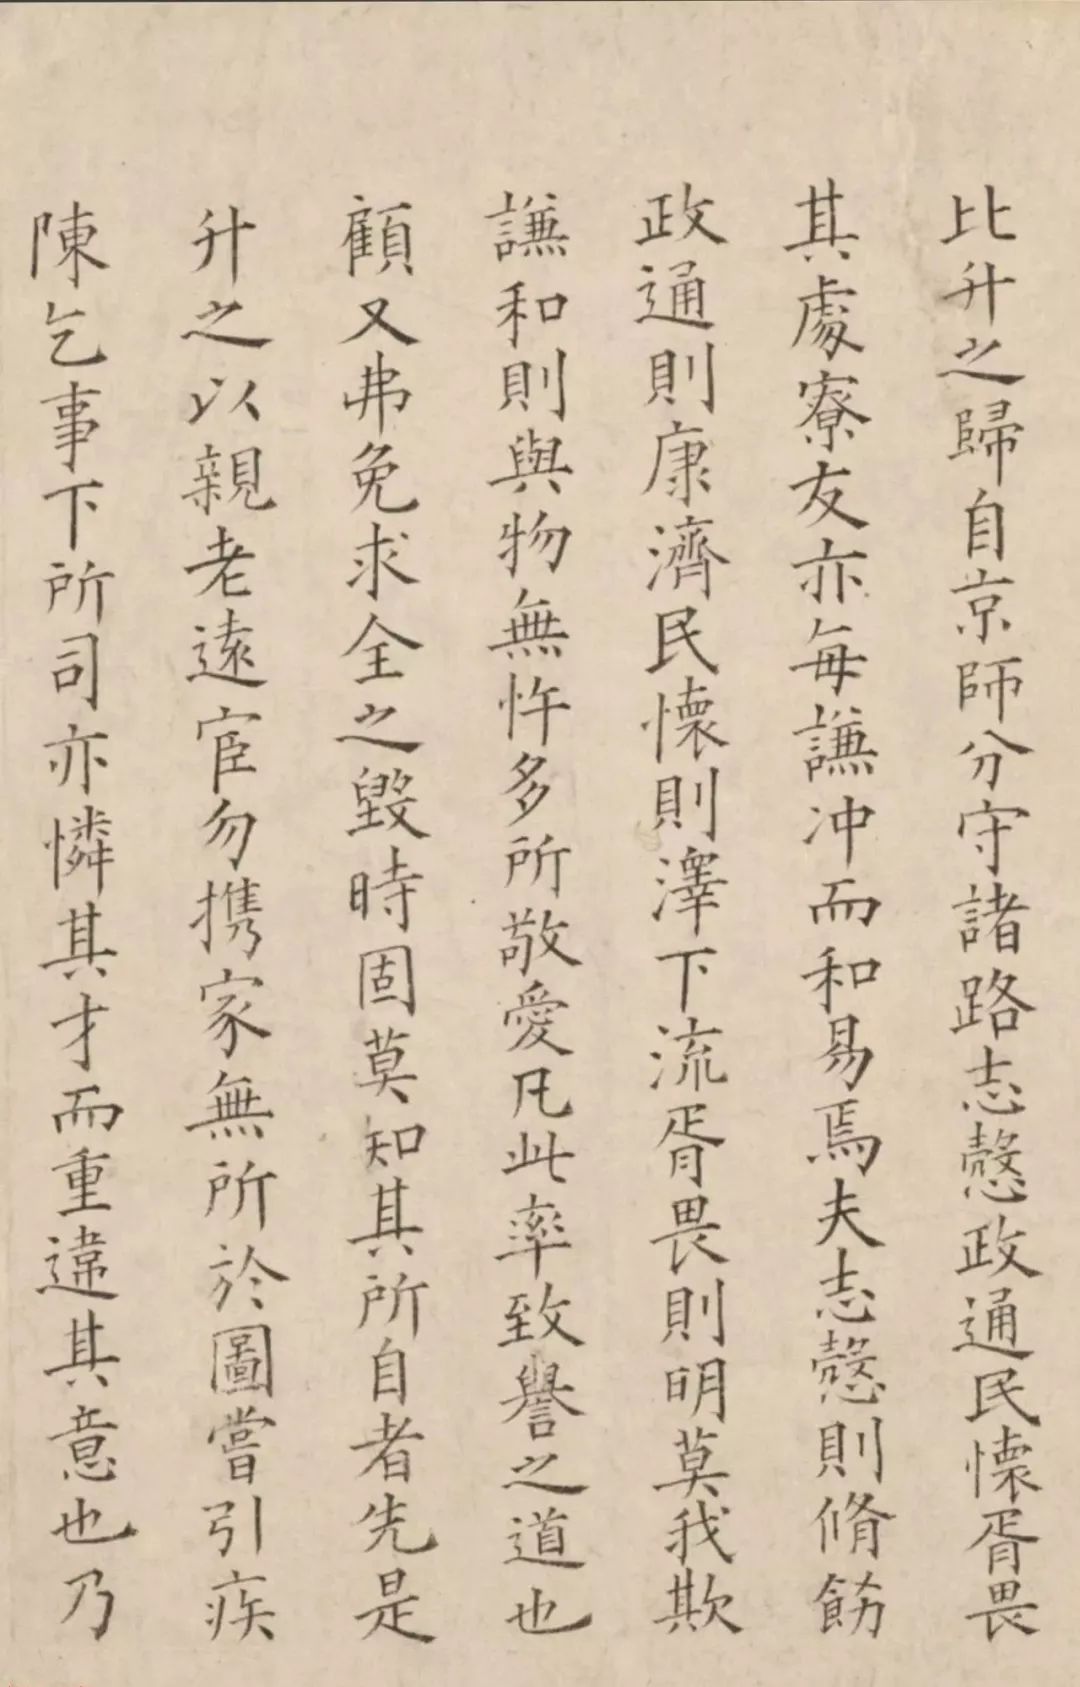 比升之歸自京師分守諸路志慤政通民懷胥畏
其處寮友亦每謙冲而和易焉夫志慤則脩飭
政通則康濟民懷則澤下流胥畏則明莫我欺
謙和則與物無忤多所敬愛凡此率致譽之道也
顧又弗免求全之毀時固莫知其所自者先是
升之以親老遠宦勿携家無所於圖嘗引疾
陳乞事下所司亦憐其才而重違其意也乃